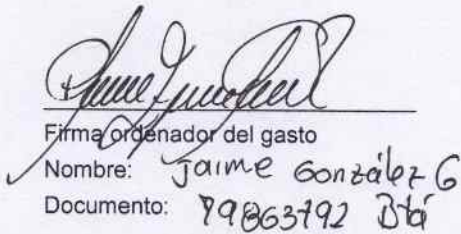 Firma ordenador del gasto
Nombre: Jaime González G
Documento: 79863792 Btá